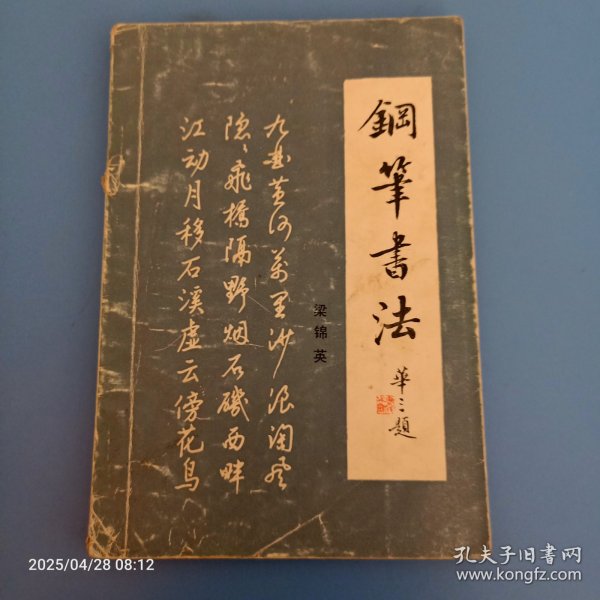 鋼筆書法
華三題
梁锦英
九曲黄河万里沙浪淘风
隐隐飞桥隔野烟石矶西畔
江动月移石溪虚云傍花鸟
2025/04/28 08:12
孔夫子旧书网
www.kongfz.com